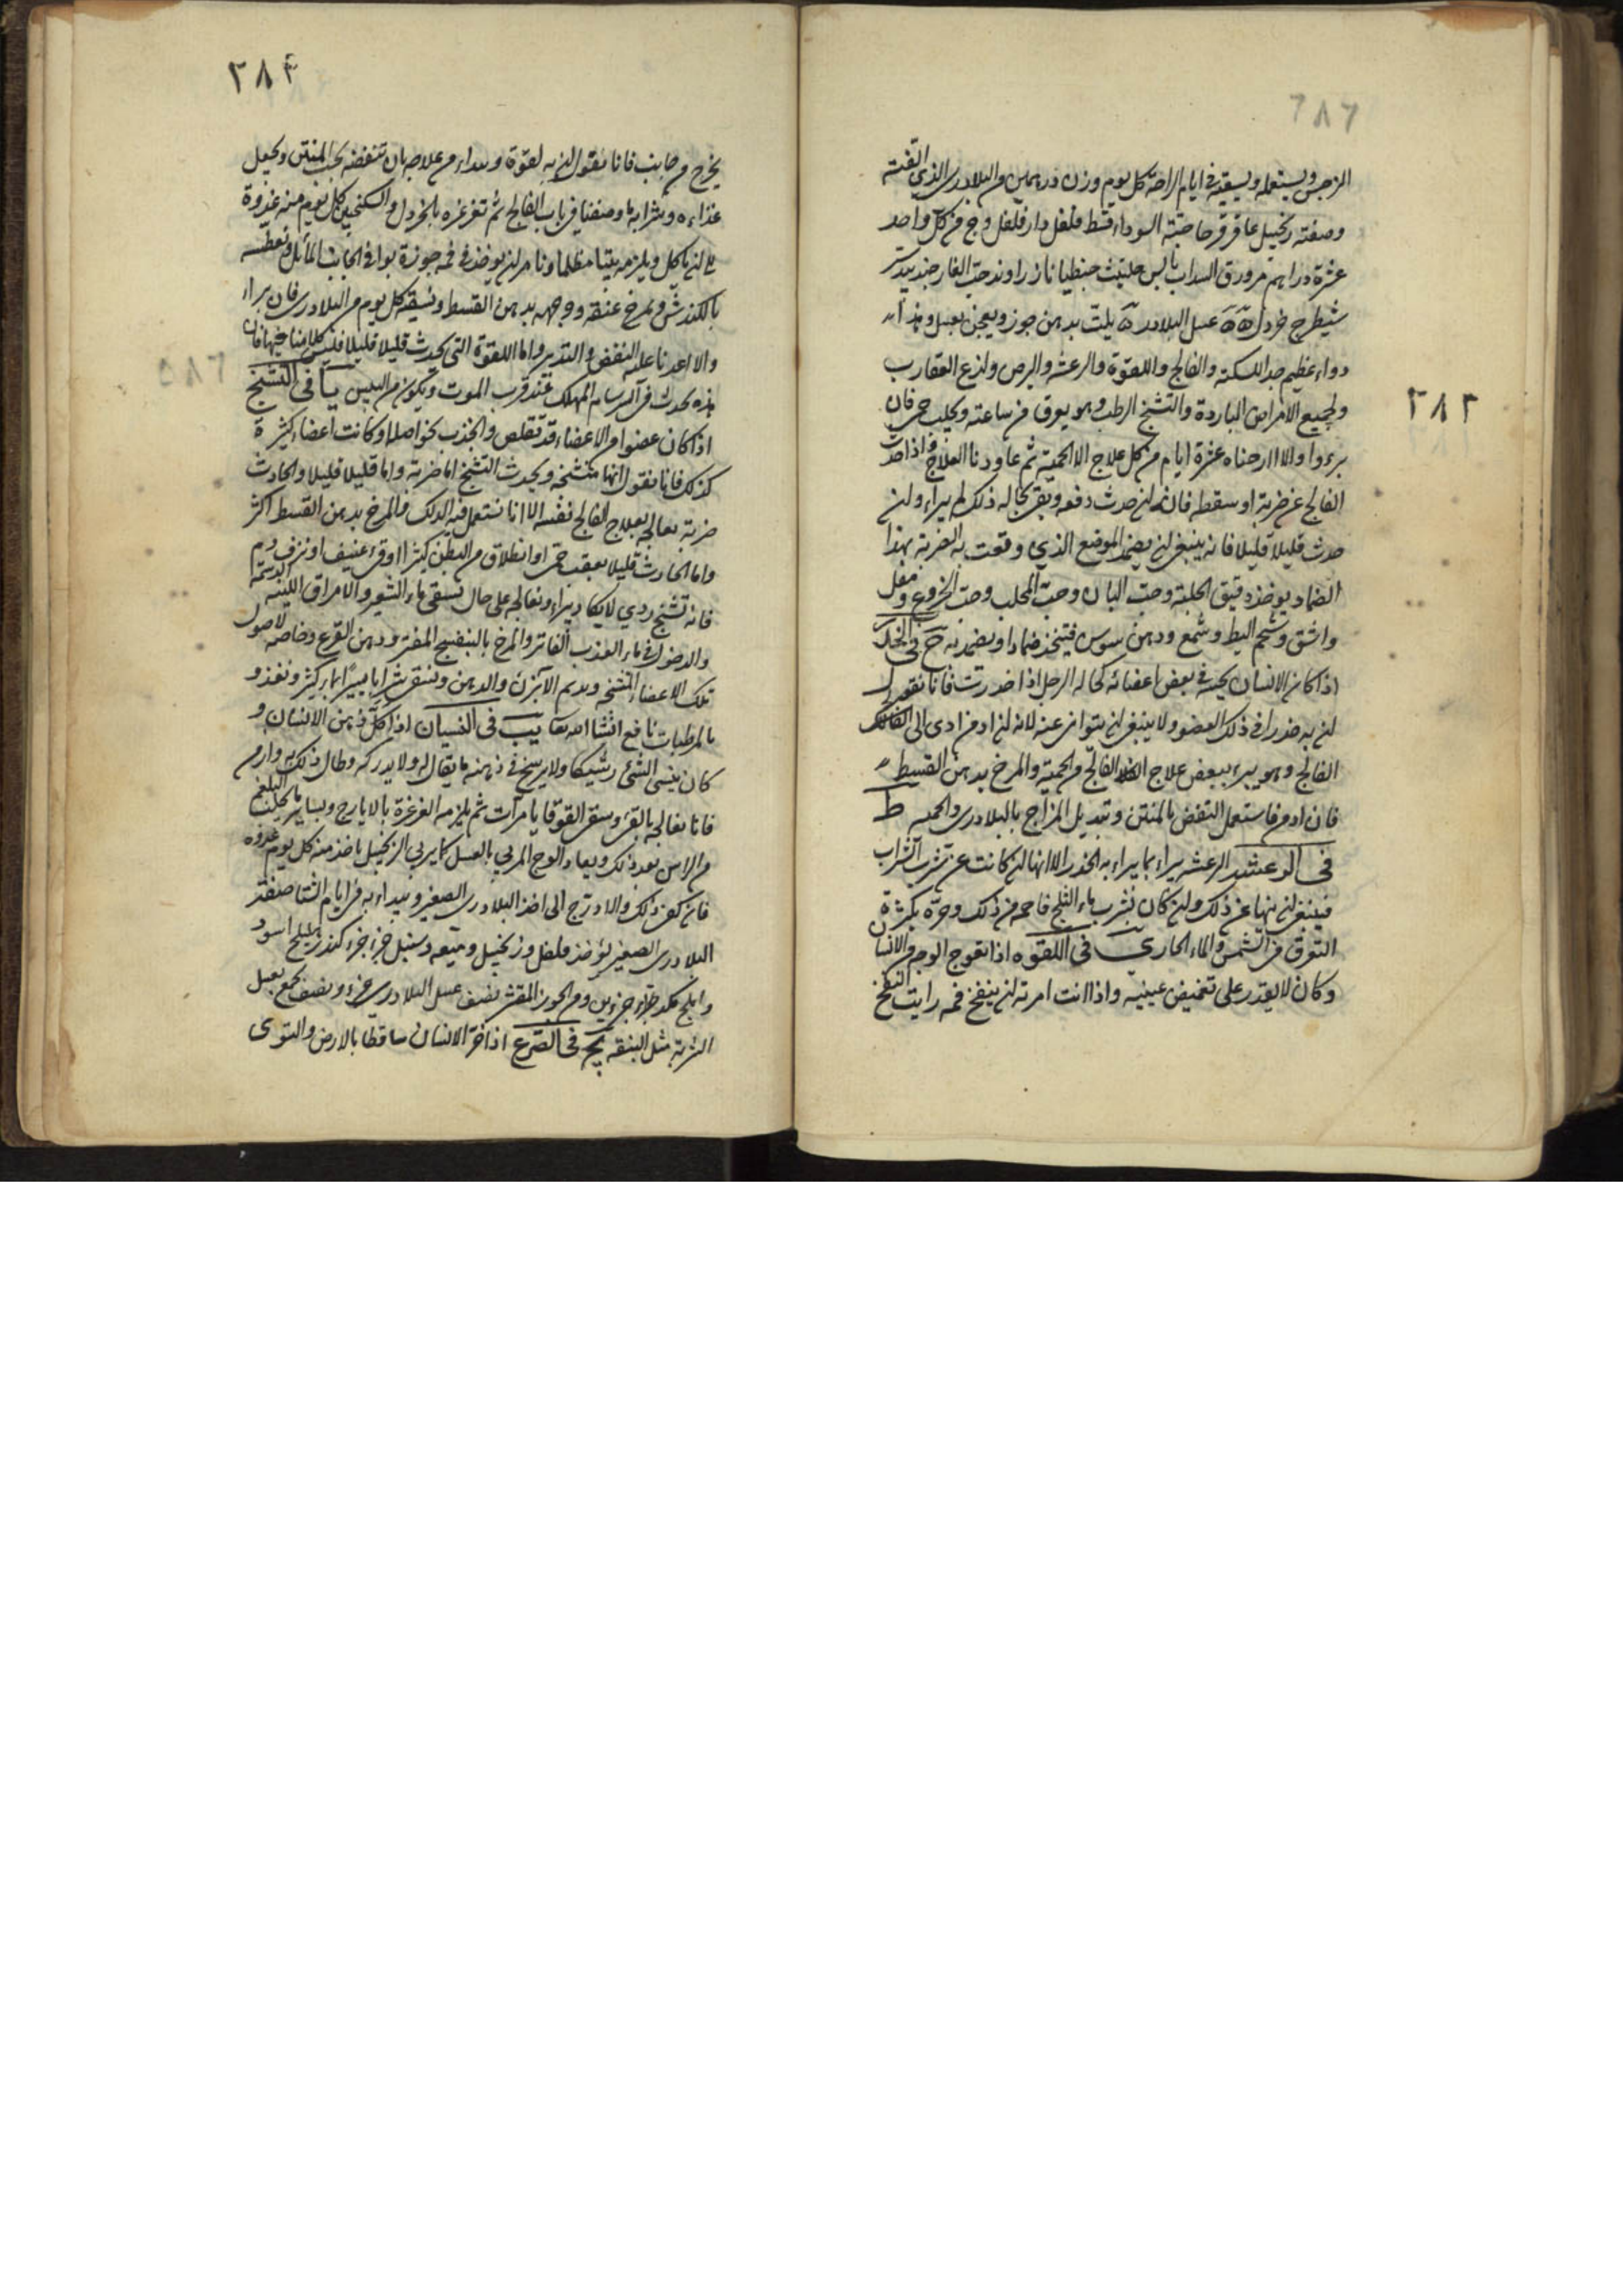 ٢٨٣
الزجس ويستعمله ويسقيه في ايام الراحة كل يوم وزن درهمين من البلادرى الذى الفته
وصفته زنجبيل عاقرقرحا حبة السوداء قسط فلفل دارفلفل وج من كل واحد
عشرة دراهم ورق السداب يابس حلتيث جنطيانا زراوند حب الغار جندبيدستر
شيطرج خردل عسل البلادر يلت بدهن جوز ويعجن بعسل وهذا
دواء عظيم جدا للسكته والفالج واللقوة والرعشه والبرص ولذع العقارب
ولجميع الامراض الباردة والتشنج الرطب وهو يعرق من ساعته ويجلب حمى فان
برءوا والا ارحناه عشرة ايام من كل علاج الا الحمية ثم عاودنا العلاج واذا حدث
الفالج عن ضربة او سقطه فانه ان حدث دفعه وبقى بحاله ذلك لم يبراء وان
حدث قليلا قليلا فانه ينبغى ان يضمد الموضع الذي وقعت به الضربة بهذا
الضماد يوخذ دقيق الحلبة وحب البان وحب المحلب وحب الخروع ومقل
واشق وشحم البط وشمع ودهن سوس فيتخذ ضمادا ويضمد به ح في الخدر
اذا كان الانسان يحس في بعض اعضائه كحالة الرجل اذا خدرت فانا نقول
ان به خدرا في ذلك العضو ولا ينبغى ان يتوانى عنه لانه ان ازمن ادى الى
الفالج وهو يبرء ببعض علاج الفالج من الحمية والمرخ بدهن القسط
فان ازمن فاستعمل النفض بالمنتن وتبديل المزاج بالبلادرى والحميه ط
في الرعشه الرعشه يبراء بما يبراء به الخدر الا انها ان كانت عن شرب الشراب
فينبغى ان ينهى عن ذلك وان كان بشرب ماء الثلج فاحمه من ذلك ومره بكثرة
التعرق في الشمس والماء الحار ى في اللقوه اذا تعوج الوجه من الانسان
وكان لا يقدر على تغميض عينيه واذا انت امرته ان ينفخ فمه رايت النفخ
٢٨٤
يخرج من جانب فانا نقول ان به لقوة ويبداء من علاجه بان تنفضه بحب المنتن ويجعل
غذاءه وشرابه ما وصفنا في باب الفالج ثم تغرغره بالخردل والسكنجبين كل يوم منه غدوة
على ان ياكل ويلزمه بيتا مظلما ونامر ان يوخذ في فمه جوزة بوا في الجانب المائل وتعطسه
بالكندش ونمرخ عنقه ووجهه بدهن القسط ونسقيه كل يوم من البلادرى فان براء
والا اعدنا عليه النفض والتدبير واما اللقوة التي يحدث قليلا قليلا فليس كلامنا فيها فان
هذه تحدث في السرسام المهلك عند قرب الموت ويكون من اليبس يا في التشنج
اذا كان عضوا من الاعضاء قد تقلص وانجذب نحو اصله او كانت اعضاء كثيرة
كذلك فانا نقول انها متشنجه ويحدث التشنج اما ضربة واما قليلا قليلا والحادث
ضربة يعالج بعلاج الفالج نفسه الا انا نستعمل فيه الدلك والمرخ بدهن القسط اكثر
واما الحادث قليلا بعقب حمى او انطلاق من البطن كثيرا او قىء عنيف او نزف دم
فانه تشنج ردي لا يكاد يبراء ونعالجه على حال نسقى ماء الشعير والامراق اللينه الدسمة
والدخول في ماء العذب الفاتر والمرخ بالبنفسج المفتر ودهن القرع وخاصه لاصول
تلك الاعضاء المتشنجه ويديم الابزن والدهن ونسقى شرابا بماء كثير ونغذو
بالمرطبات نافع انشاالله تعا يب في النسيان اذا كل ذهن الانسان و
كان ينسى الشئ وشيكا ولا يرسخ في ذهنه ما يقال له ولا يدركه وطال ذلك وازمن
فانا نعالجه بالقىء ونسقى القوقايا مرات ثم يلزمه الغرغرة بالايارج وبساير ما يجلب البلغم
من الراس بعد ذلك ويعاد الوج المربي بالعسل كما يربي الزنجبيل ياخذ منه كل يوم غدوه
فان كفى ذلك والا درج الى اخذ البلادرى الصغير ويبداء به في ايام الشتا صنعته
البلادرى الصغير يؤخذ فلفل وزنجبيل وميعه وسنبل جزء جزء كندر اهليلج اسود
واملج كد جزء جزءين ومن الجوز المقشر نصف عسل البلادرى جزء ونصف يجمع بعسل
الشربة مثل البندقه يج في الصرع اذا خر الانسان ساقطا بالارض والتوى